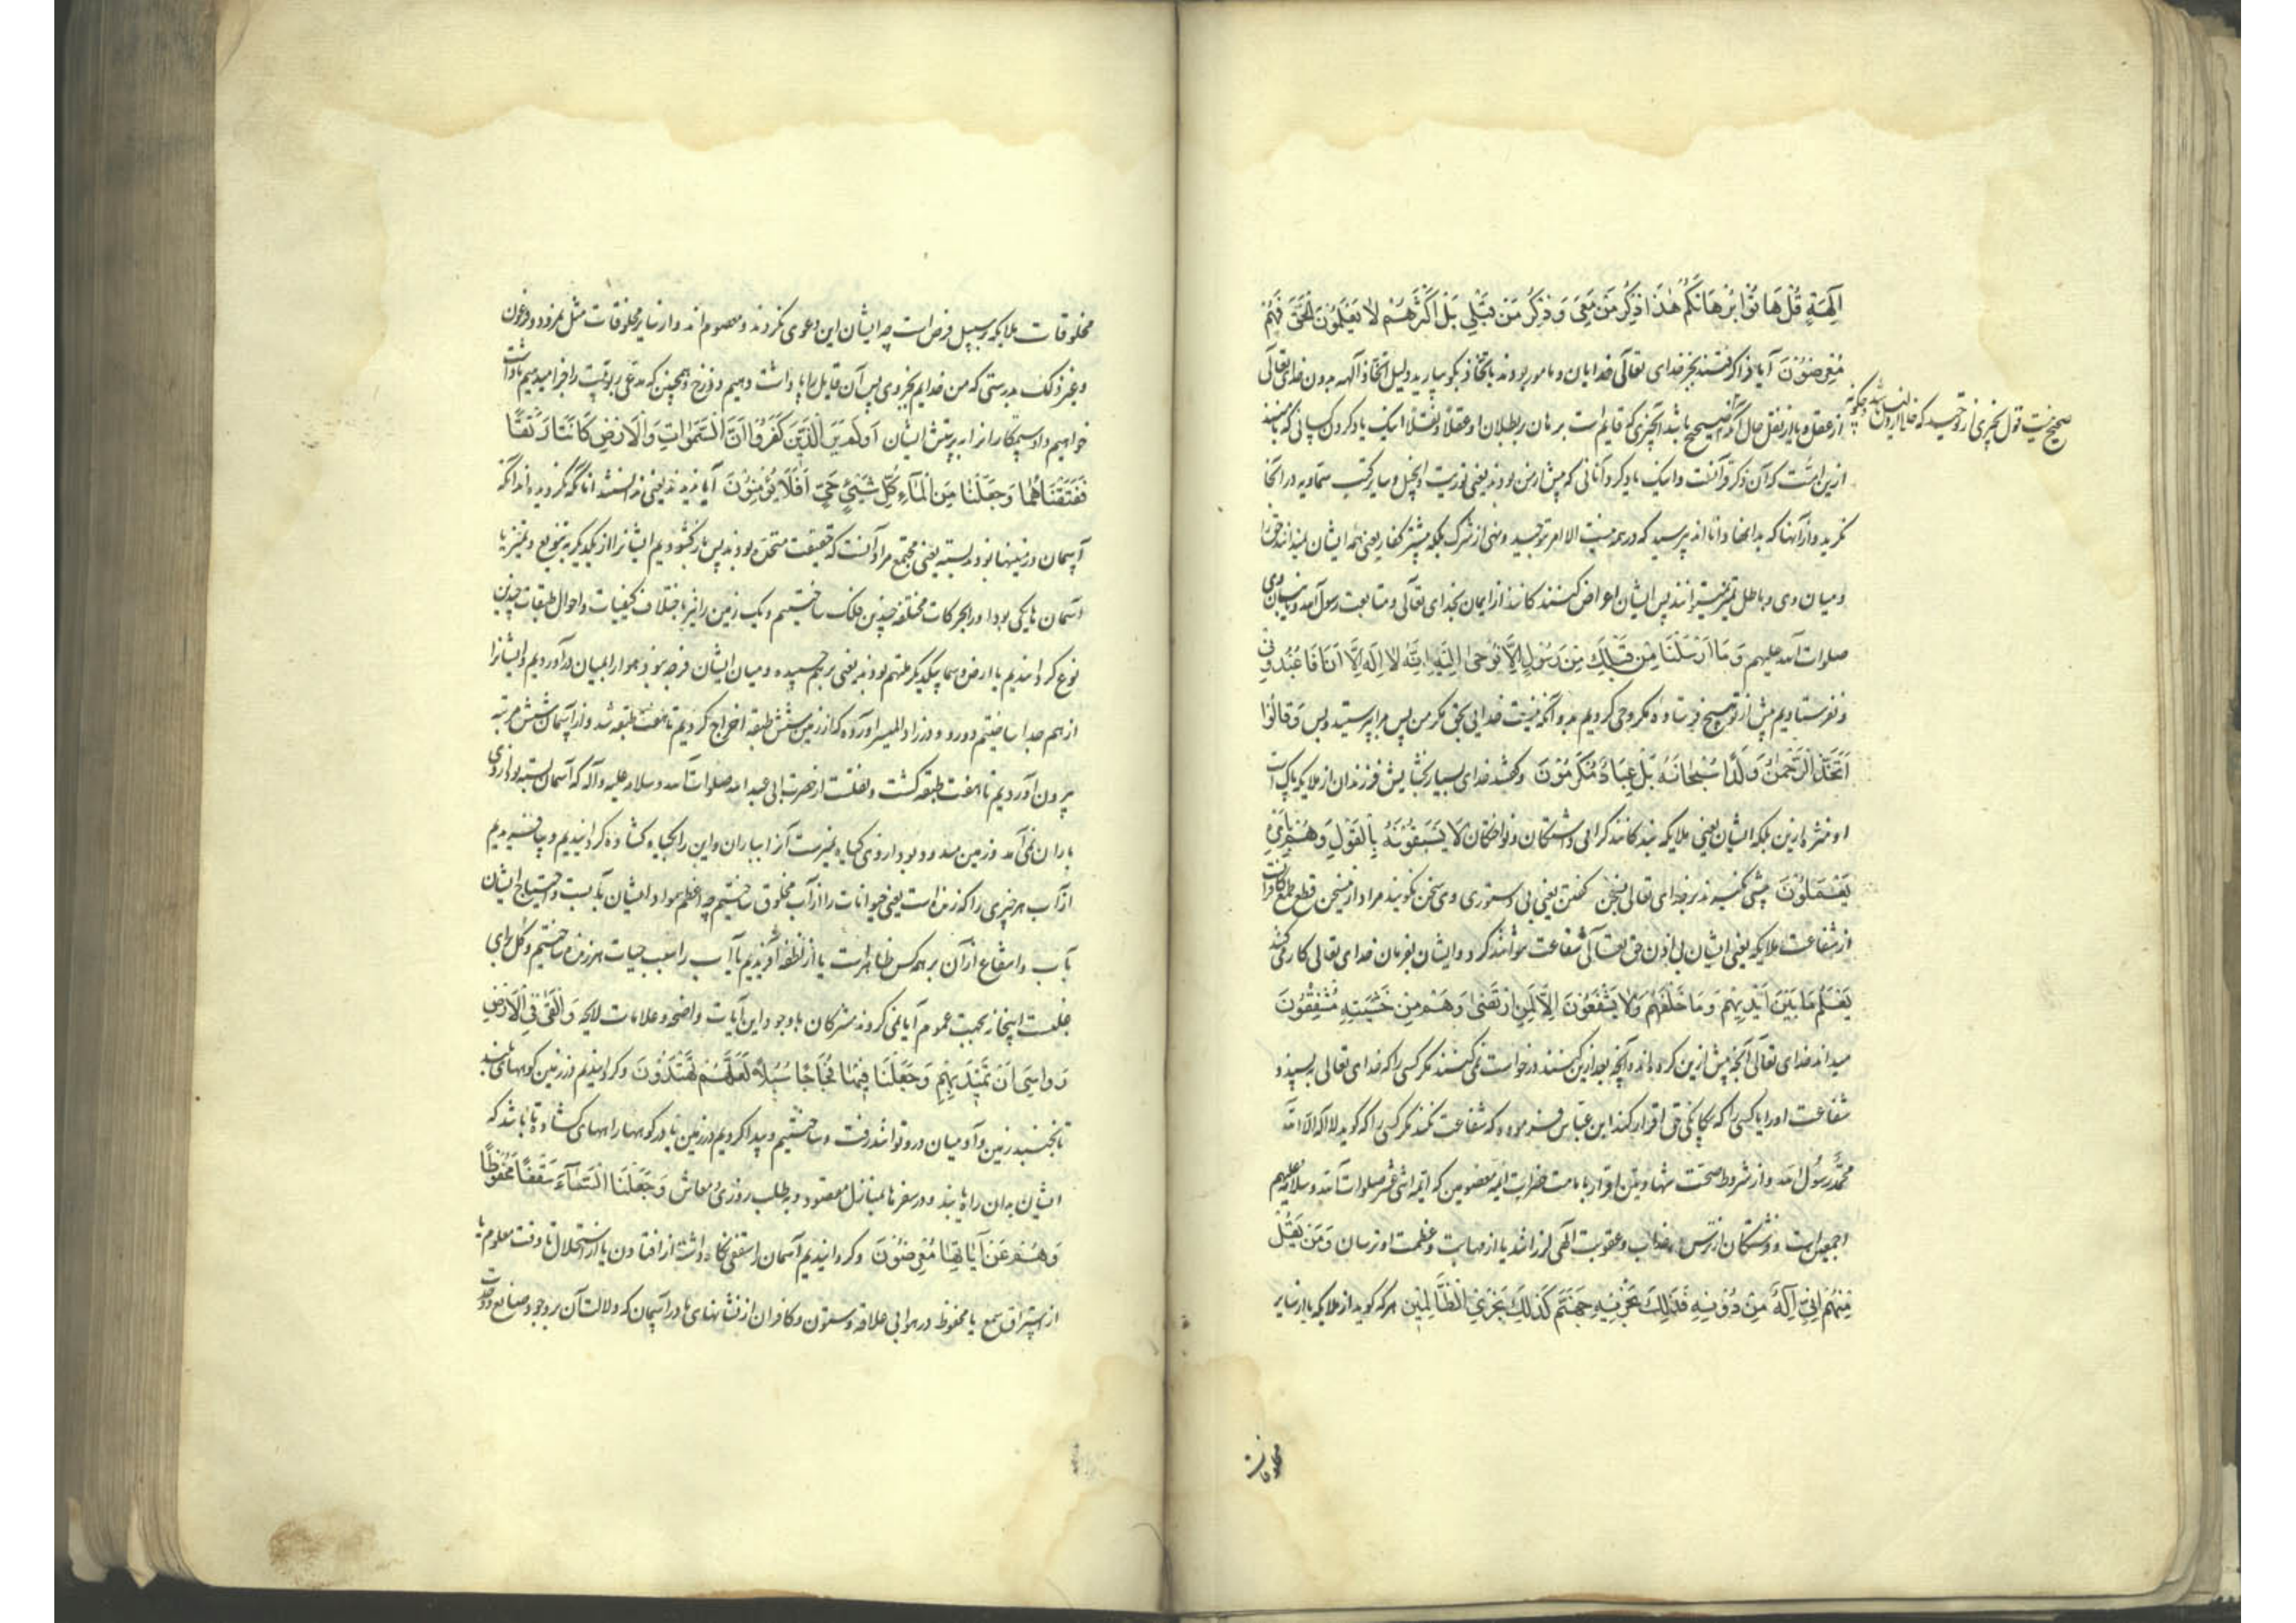 آلِهَةً قُلْ هَاتُوا بُرْهَانَكُمْ هٰذَا ذِكْرُ مَنْ مَعِيَ وَذِكْرُ مَنْ قَبْلِي بَلْ أَكْثَرُهُمْ لَا يَعْلَمُونَ الْحَقَّ فَهُمْ
مُعْرِضُونَ آیا فرا گرفتند بجز خدای تعالی خدایان و مامور بودند باتخاذ بگو بیارید دلیل اتخاذ آلهه بدون خدای تعالی
از عقل و یا از نقل حال آنکه صحیح باشد آنچیزی که قایم است برهان بر بطلان او عقلا و نقلا اینک یاد کردن کسانی که منند
صحیح نیست قول بچیزی
ازین امت که آن ذکر قرآنست و اینک یاد کرد آنانی که پیش از من بودند یعنی توریت و انجیل و سایر کتب سماویه در آنجا
نگرید و از آنها که بدانها دانااند پرسید که در همه نیست الا امر توحید و نهی از شرک بلکه بیشتر کفار یعنی همه ایشان نمیدانند حق را
و میان وی و باطل تمیز نمیتوانند پس ایشان اعراض کنندگانند از ایمان بخدای تعالی و متابعت رسول
صلوات الله علیهم وَمَا أَرْسَلْنَا مِنْ قَبْلِكَ مِنْ رَسُولٍ إِلَّا نُوحِي إِلَيْهِ أَنَّهُ لَا إِلَهَ إِلَّا أَنَا فَاعْبُدُونِ
و نفرستادیم پیش از تو هیچ فرستاده مگر وحی کردیم بدو آنکه نیست خدایی بحق مگر من پس مرا بپرستید و بس وَقَالُوا
اتَّخَذَ الرَّحْمٰنُ وَلَدًا سُبْحَانَهُ بَلْ عِبَادٌ مُكْرَمُونَ و گفتند خدای بسیار بخشایش فرزندان از ملایکه پاک است
او و منزه ازین بلکه ایشان یعنی ملایکه بندگانند گرامی داشتگان و نواختگان لَا يَسْبِقُونَهُ بِالْقَوْلِ وَهُمْ بِأَمْرِهِ
يَعْمَلُونَ پیشی نگیرند بر خدای تعالی بسخن گفتن یعنی بی دستوری وی سخن نگویند مراد ازین سخن قطع طمع کافرانست
از شفاعت ملایکه یعنی ایشان بی اذن حق تعالی شفاعت نتوانند کرد و ایشان بفرمان خدای تعالی کار می کنند
يَعْلَمُ مَا بَيْنَ أَيْدِيهِمْ وَمَا خَلْفَهُمْ وَلَا يَشْفَعُونَ إِلَّا لِمَنِ ارْتَضَى وَهُمْ مِنْ خَشْيَتِهِ مُشْفِقُونَ
میداند خدای تعالی آنچه پیش ازین کرده اند و آنچه بعد ازین کنند و درخواست نمی کنند مگر کسی را که خدای تعالی بپسندد
شفاعت او را یا کسی را که بیگانگی حق اقرار کند ابن عباس فرموده که شفاعت نکنند مگر کسی را که گوید لا اله الا الله
محمد رسول الله و از شروط صحت شهادتین اقرار بامامت حضرات ائمه معصومین که ائمه اثنی عشر صلوات الله و سلامه علیهم
اجمعین است و فرشتگان از ترس عذاب و عقوبت الهی لرزانند یا از مهابت و عظمت او ترسان وَمَنْ يَقُلْ
مِنْهُمْ إِنِّي إِلَهٌ مِنْ دُونِهِ فَذَلِكَ نَجْزِيهِ جَهَنَّمَ كَذَلِكَ نَجْزِي الظَّالِمِينَ هر که گوید از ملایکه یا از سایر
مخلوقات
مخلوقات ملایکه بر سبیل فرض است چه ایشان این دعوی نکردند و معصوم اند و از سایر مخلوقات مثل نمرود و فرعون
و غیر ذلک بدرستی که من خدایم بجز وی پس آن قایل را پاداشت دهیم دوزخ و همچنین که مدعی ربوبیت را جزا میدهیم پاداشت
خواهیم داد ستمکاران را به پرستش ایشان أَوَلَمْ يَرَ الَّذِينَ كَفَرُوا أَنَّ السَّمٰوَاتِ وَالْأَرْضَ كَانَتَا رَتْقًا
فَفَتَقْنَاهُمَا وَجَعَلْنَا مِنَ الْمَاءِ كُلَّ شَيْءٍ حَيٍّ أَفَلَا يُؤْمِنُونَ آیا ندیدند یعنی ندانستند آنانکه نگرویده اند آنکه
آسمان و زمینها بودند بسته یعنی مجتمع مراد آنست که حقیقت متحده بودند پس باز گشودیم ایشانرا از یکدیگر به تنویع و تمیز یا
آسمان ها یکی بود او را بحرکات مختلفه چندین فلک ساختیم و یک زمین را نیز باختلاف کیفیات و احوال طبقات چندین
نوع گردانیدیم یا ارض و سما بیکدیگر ملتئم بودند یعنی بر هم چسپیده و میان ایشان فرجه نبود هوا را بمیان در آوردیم و ایشانرا
از هم جدا ساختیم و در زاد المسیر آورده که از زمین شش طبقه اخراج کردیم تا هفت طبقه شد و از آسمان شش مرتبه
بیرون آوردیم تا هفت طبقه گشت و نقلست از حضرت ابی عبد الله صلوات الله و سلامه علیه و آله که آسمان بسته بود از وی
باران نمی آمد و زمین مسدود بود از وی گیاه نمیرست آنرا بباران و این را بگیاه گشاده گردانیدیم و بیافریدیم
از آب هر چیزی را که زنده است یعنی حیوانات را از آب مخلوق ساختیم چه اعظم مواد ایشان آبست و احتیاج ایشان
بآب و انتفاع از آن بر همه کس ظاهر است یا از نطفه آفریدیم یا آب را سبب حیات هر زنده ساختیم و کل برای
آیا نمی گروند مشرکان با وجود این آیات واضحه و علامات لایحه وَأَلْقَى فِي الْأَرْضِ
رَوَاسِيَ أَنْ تَمِيدَ بِهِمْ وَجَعَلْنَا فِيهَا فِجَاجًا سُبُلًا لَعَلَّهُمْ يَهْتَدُونَ و گردانیدیم در زمین کوههای بلند
تا نجنبد زمین و آدمیان درو توانند رفت و ساختیم و پیدا کردیم در زمین یا در کوهها راههای گشاده تا باشد که
ایشان بدان راه یابند و در سفرها بمنازل مقصود و بطلب روزی و معاش وَجَعَلْنَا السَّمَاءَ سَقْفًا مَحْفُوظًا
وَهُمْ عَنْ آيَاتِهَا مُعْرِضُونَ و گردانیدیم آسمان را سقفی نگاه داشته از افتادن یا از انحلال تا وقت معلوم یا
از استراق سمع یا محفوظ در هوا بی علاقه و ستون و کافران از نشانهای ما در آسمان که دلالت آن بر وجود صانع و وحدت